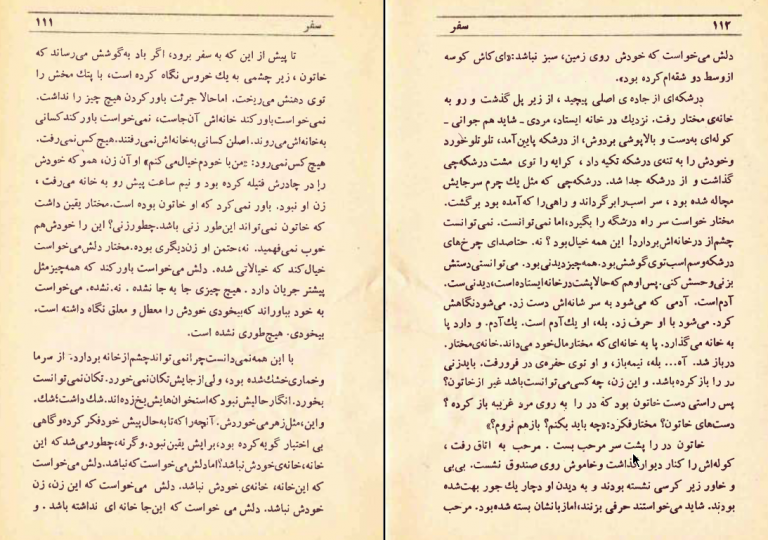 سفر ۱۱۱
تا پیش از این که به سفر برود، اگر باد به‌گوشش می‌رساند که
خاتون، زیر چشمی به یك خروس نگاه کرده است، با پتك مخش را
توی دهنش می‌ریخت. اما حالا جرئت باور کردن هیچ چیز را نداشت.
نمی‌خواست باور کند خانه‌اش آن‌جاست، نمی‌خواست باور کند کسانی
به خانه‌اش می‌روند. اصلن کسانی به خانه‌اش نمی‌رفتند. هیچ کس نمی‌رفت.
هیچ کس نمی‌رود: «من با خودم خیال می‌کنم» او آن زن، همو که خودش
را در چادرش فتیله کرده بود و نیم ساعت پیش رو به خانه می‌رفت،
زن او نبود. باور نمی‌کرد که او خاتون بوده است. مختار یقین داشت
که خاتون نمی‌تواند این‌طور زنی باشد. چطور زنی؟ این را خودش هم
خوب نمی‌فهمید. نه، حتمن او زن دیگری بوده. مختار دلش می‌خواست
خیال کند که خیالاتی شده. دلش می‌خواست باور کند که همه چیز مثل
پیشتر جریان دارد. هیچ چیزی جا به جا نشده. نه. نشده، می‌خواست
به خود بباوراند که بیخودی خودش را معطل و معلق نگاه داشته است.
بیخودی. هیچ‌طوری نشده است.
با این همه نمی‌دانست چرا نمی‌تواند چشم از خانه بردارد. از سرما
و خماری خشك شده بود، ولی از جایش تکان نمی‌خورد. تکان نمی‌توانست
بخورد. انگار حالیش نبود که استخوان‌هایش یخ زده‌اند. شك داشت؛ شك.
و این، مثل زهر می‌خوردش. آنچه را که تا به حال پیش خود فکر کرده و گاهی
بی اختیار گویه کرده بود، برایش یقین نبود. و گرنه، چطور می‌شد که این
خانه، خانه‌ی خودش نباشد؟! اما دلش می‌خواست که نباشد. دلش می‌خواست
که این خانه، خانه‌ی خودش نباشد. دلش می‌خواست که این زن، زن
خودش نباشد. دلش می خواست که این‌جا خانه ای نداشته باشد. و
۱۱۲ سفر
دلش می‌خواست که خودش روی زمین، سبز نباشد: «ای کاش کوسه
از وسط دو شقه‌ام کرده بود».
درشکه‌ای از جاده ی اصلی پیچید، از زیر پل گذشت و رو به
خانه‌ی مختار رفت. نزدیك در خانه ایستاد، مردی ـ شاید هم جوانی ـ
کوله‌ای به‌دست و بالاپوشی بردوش، از درشکه پایین آمد، تلوتلو خورد
و خودش را به تنه‌ی درشکه تکیه داد، کرایه را توی مشت درشکه‌چی
گذاشت و از درشکه جدا شد. درشکه‌چی که مثل یك چرم سر جایش
مچاله شده بود، سر اسب را برگرداند و راهی را که آمده بود برگشت.
مختار خواست سر راه درشگه را بگیرد، اما نمی‌توانست. نمی‌توانست
چشم از در خانه‌اش بردارد! این همه خیال بود؟ نه. حتا صدای چرخ‌های
درشکه و سم اسب توی گوشش بود. همه چیز دیدنی بود. می‌توانستی دستش
بزنی و حسش کنی. پس او هم که حالا پشت در خانه ایستاده است، دیدنی ست.
آدم است. آدمی که می‌شود به سر شانه‌اش دست زد. می‌شود نگاهش
کرد. می‌شود با او حرف زد. بله، او یك آدم است. یك آدم. و دارد پا
به خانه می‌گذارد. پا به خانه‌ای که مختار مال خود می‌داند. خانه‌ی مختار.
در باز شد. آه... بله، نیمه‌باز، و او توی حفره‌ی در فرو رفت. باید زنی
در را باز کرده باشد. و این زن، چه کسی می‌توانست باشد غیر از خاتون؟
پس راستی دست خاتون بود که در را به روی مرد غریبه باز کرده؟
دست‌های خاتون؟ مختار فکر کرد: «چه باید بکنم؟ بازهم فروم؟»
خاتون در را پشت سر مرحب بست. مرحب به اتاق رفت،
کوله‌اش را کنار دیوار گذاشت و خاموش روی صندوق نشست. بی‌بی
و خاور زیر کرسی نشسته بودند و به دیدن او دچار یك جور بهت شده
بودند. شاید می‌خواستند حرفی بزنند، اما زبانشان بسته شده بود. مرحب